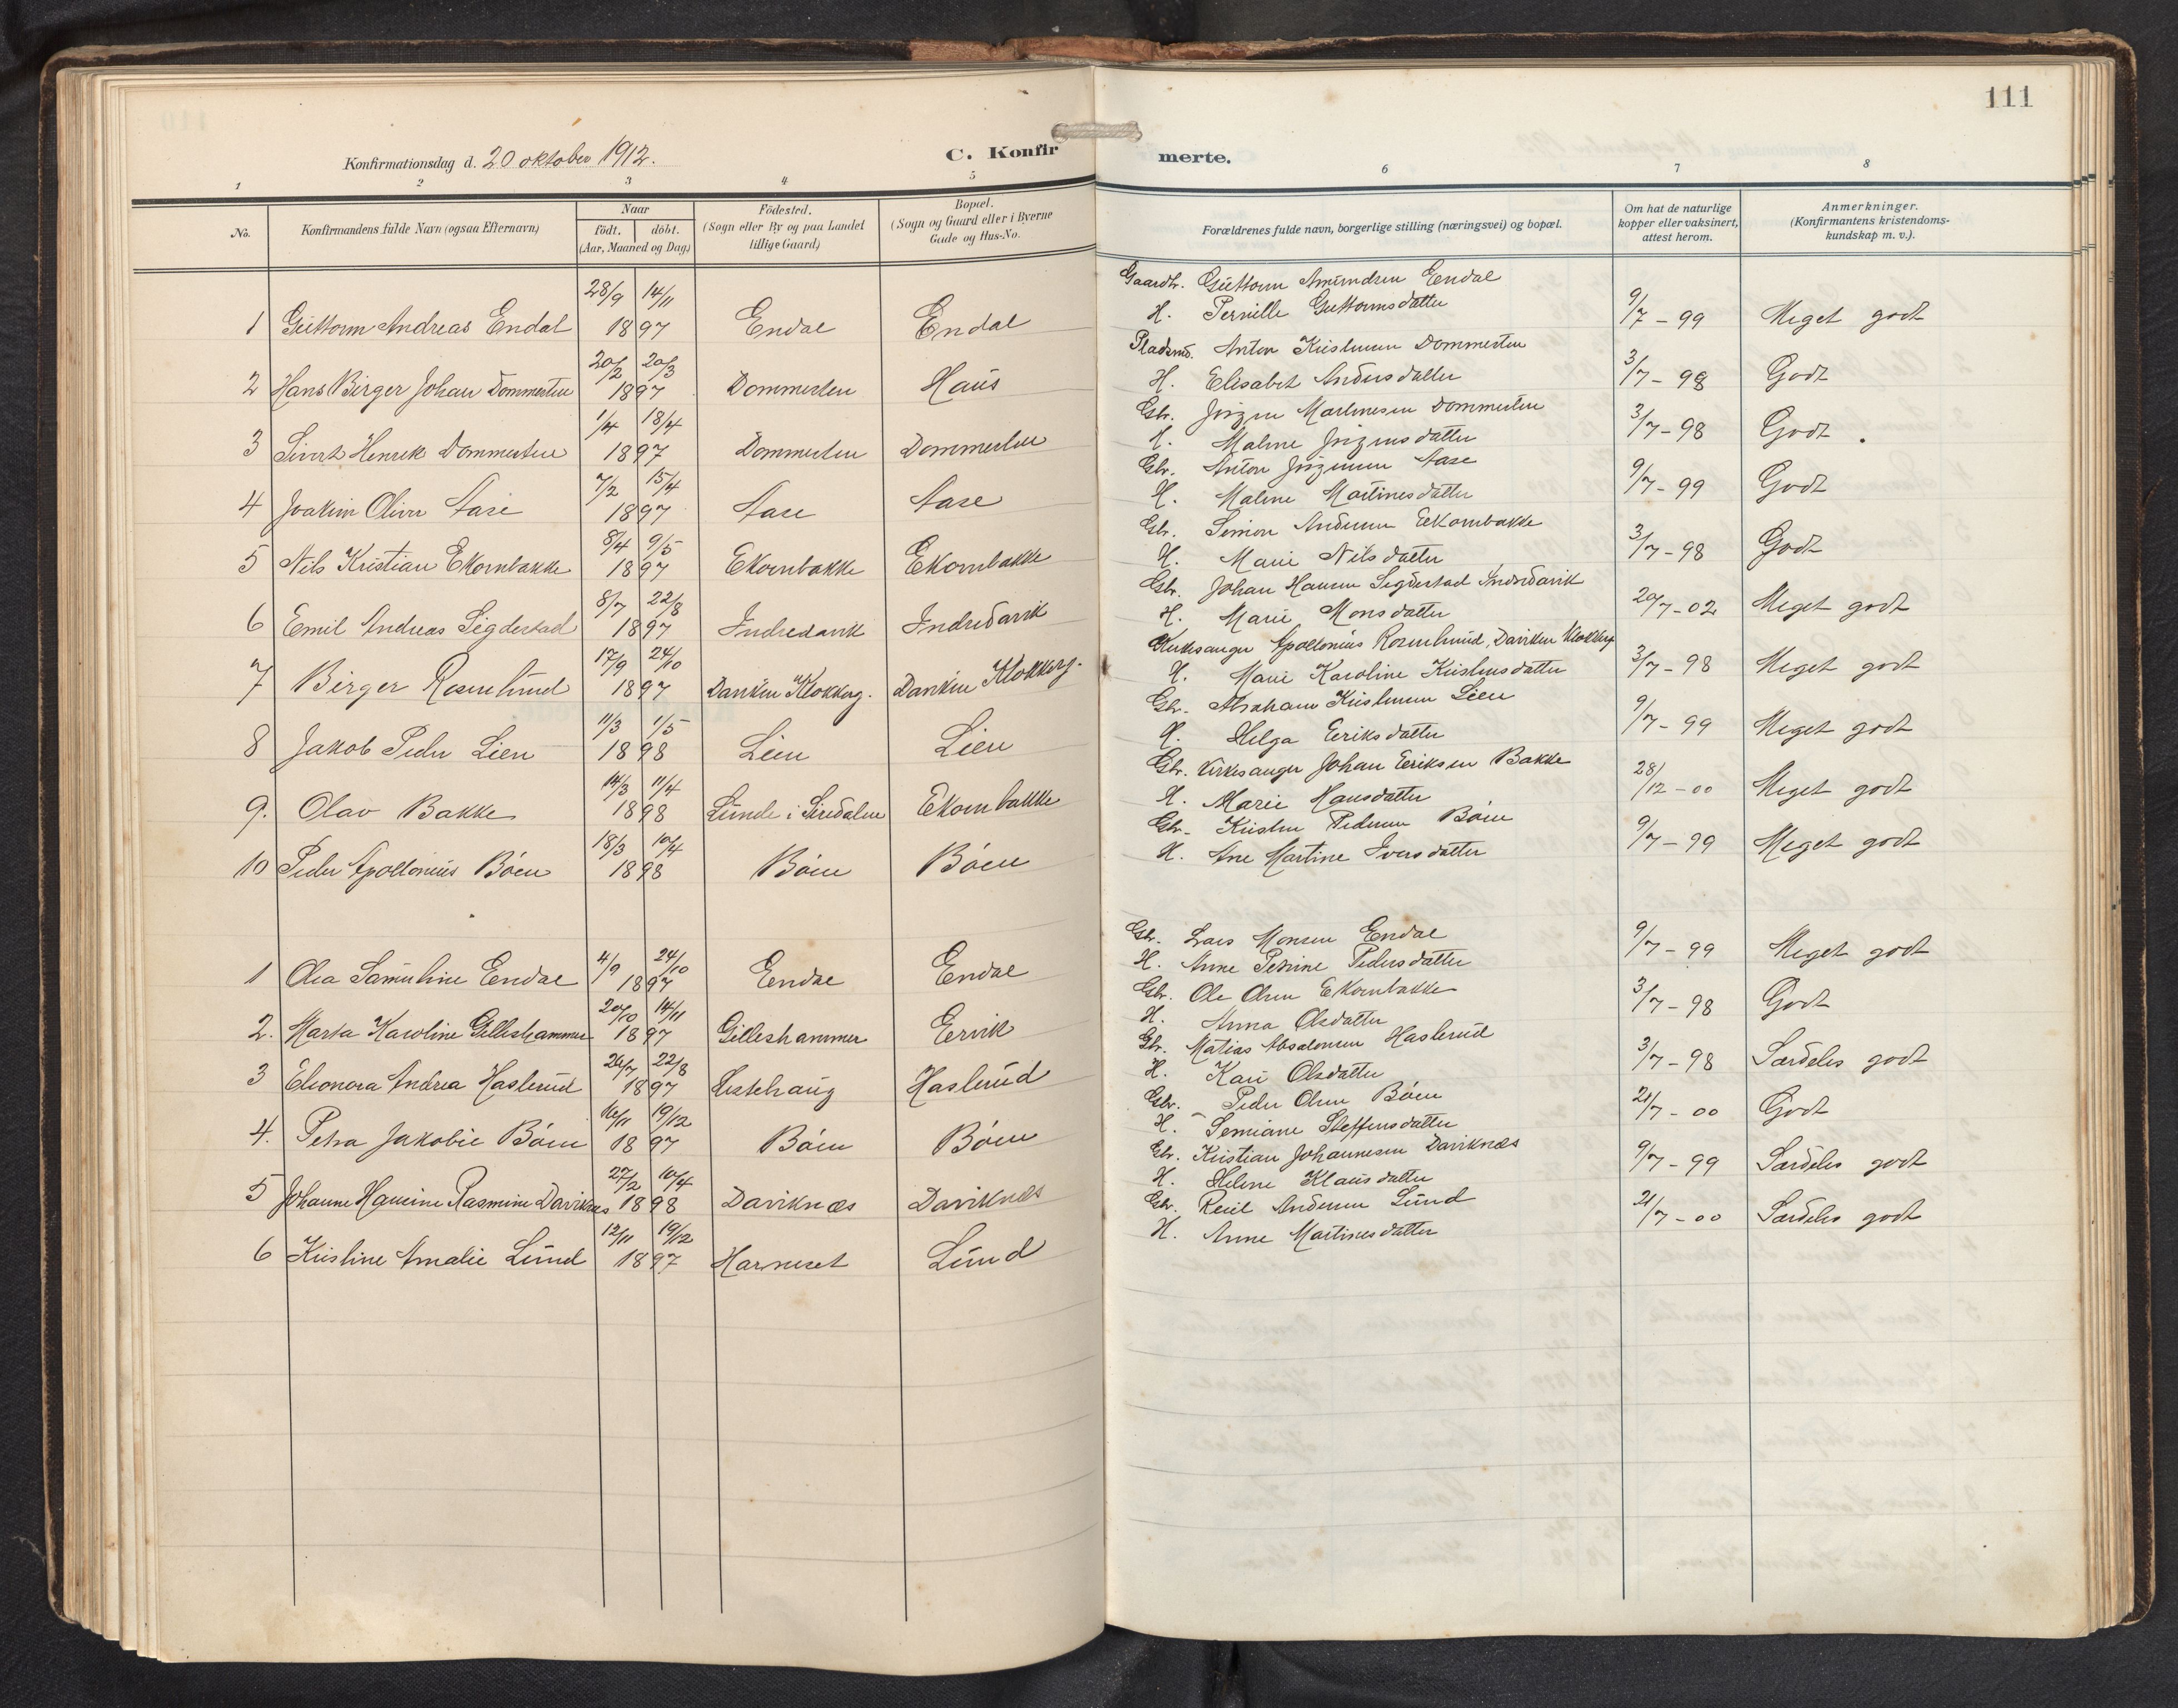 111
Konfirmationsdag d. 20 oktober 1912.
C. Konfirmerte.
1 2 3 4 5 6 7 8
No.
Konfirmandens fulde Navn (ogsaa Efternavn)
Naar
født. døbt.
(Aar, Maaned og Dag)
Födested.
(Sogn eller By og paa Landet
tillige Gaard)
Bopæl.
(Sogn og Gaard eller i Byerne
Gade og Hus-No.
Forældrenes fulde navn, borgerlige stilling (næringsvei) og bopæl.
Om hat de naturlige
kopper eller vaksinert,
attest herom.
Anmerkninger.
(Konfirmantens kristendoms-
kundskap m. v.).
28/9 14/11 Gaardbr. Guttorm Amundsen Endal
1 Guttorm Andreas Endal 1897 Endal Endal H. Pernille Guttormsdatter 9/7-99 Meget godt
20/2 20/3 Pladsmd. Anton Kristensen Dommesten
2 Hans Birger Johan Dommesten 1897 Dommesten Haus H. Elisabet Andersdatter 3/7-98 Godt
1/4 18/4 Gbr. Jørgen Martinesen Dommesten
3 Sivert Henrik Dommesten 1897 Dommesten Dommesten H. Maline Jørgensdatter 3/7-98 Godt.
7/2 15/4 Gbr. Anton Jørgensen Aase
4 Joakim Oliver Aase 1897 Aase Aase H. Maline Martinesdatter 9/7-99 Godt
8/4 9/5 Gbr. Simon Andersen Ekornbakke
5 Nils Kristian Ekornbakke 1897 Ekornbakke Ekornbakke H. Marie Nilsdatter 3/7-98 Godt
8/7 22/8 Gbr. Johan Hansen Sigdestad Indredavik
6 Emil Andreas Sigdestad 1897 Indredavik Indredavik H. Marie Monsdatter 20/7-02 Meget godt
17/9 24/10 Kirkesanger Apollonius Rosenlund, Daviken Klokkerg
7 Birger Rosenlund 1897 Daviken Klokkerg. Daviken Klokkerg. H. Marie Karoline Kristensdatter 3/7-98 Meget godt
11/3 1/5 Gbr. Abraham Kristensen Lien
8 Jakob Peder Lien 1898 Lien Lien H. Helga Eriksdatter 9/7-99 Meget godt
14/3 11/4 Gbr. Kirkesanger Johan Eriksen Bakke
9. Olav Bakke 1898 Lunde i Siredalen Ekornbakke H. Marie Hansdatter 28/12-00 Meget godt
18/3 10/4 Gbr. Kristen Pedersen Bøen
10 Peder Apollonius Bøen 1898 Bøen Bøen H. Ane Martine Iversdatter 9/7-99 Meget godt
4/9 24/10 Gbr. Lars Monsen Endal
1 Olea Samueline Endal 1897 Endal Endal H. Anne Perine Pedersdatter 9/7-99 Meget godt
20/10 14/11 Gbr. Ole Olsen Ekornbakke
2. Marta Karoline Gilleshammer 1897 Gilleshammer Ervik H. Anna Olsdatter 3/7-98 Godt
24/7 22/8 Gbr. Matias Absalonsen Haslerud
3 Eleonora Andrea Haslerud 1897 Haslerud H. Kari Olsdatter 3/7-98 Særdeles godt
16/11 19/12 Gbr. Peder Olsen Bøen
4. Petra Jakobie Bøen 1897 Bøen Bøen H. Semiane Steffensdatter 21/7-00 Godt
27/2 10/4 Gbr. Kristian Johannesen Daviknæs
5 Johanne Hansine Rasmine Daviknæs 1898 Daviknæs Daviknæs H. Helene Klausdatter 9/7-99 Særdeles godt
12/11 19/12 Gbr. Andersen Lund
6 Kristine Amalie Lund 1897 Harneset Lund H. Anne Martinesdatter 21/7-00 Særdeles godt